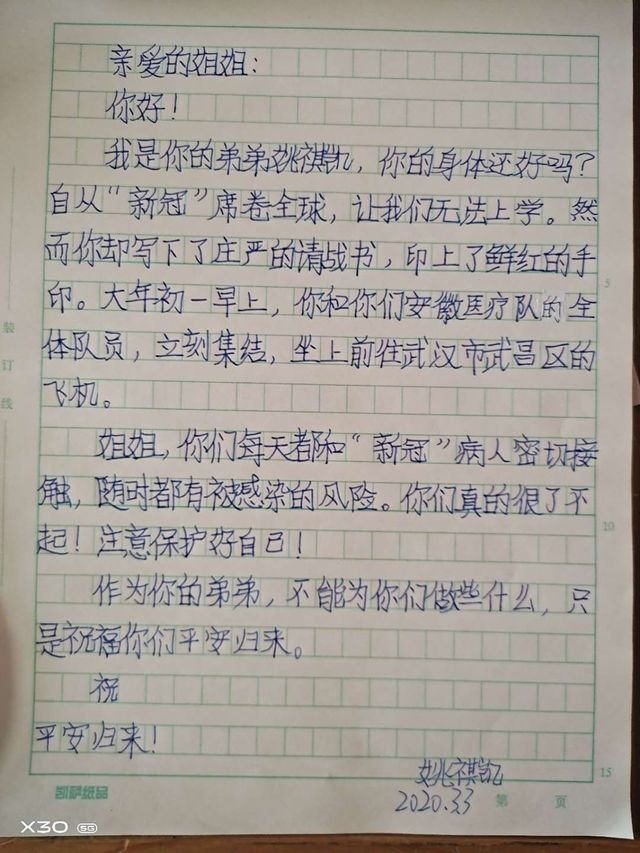 亲爱的姐姐：
你好！
我是你的弟弟姚祺凯，你的身体还好吗？
自从“新冠”席卷全球，让我们无法上学。然
而你却写下了庄严的请战书，印上了鲜红的手
印。大年初一早上，你和你们安徽医疗队的全
体队员，立刻集结，坐上前往武汉市武昌区的
飞机。
姐姐，你们每天都和“新冠”病人密切接
触，随时都有被感染的风险。你们真的很了不
起！注意保护好自己！
作为你的弟弟，不能为你们做些什么，只
是祝福你们平安归来。
祝
平安归来！
姚祺凯
2020.3.3
装订线
5
10
15
凯萨纸品
第 页
X30 5G